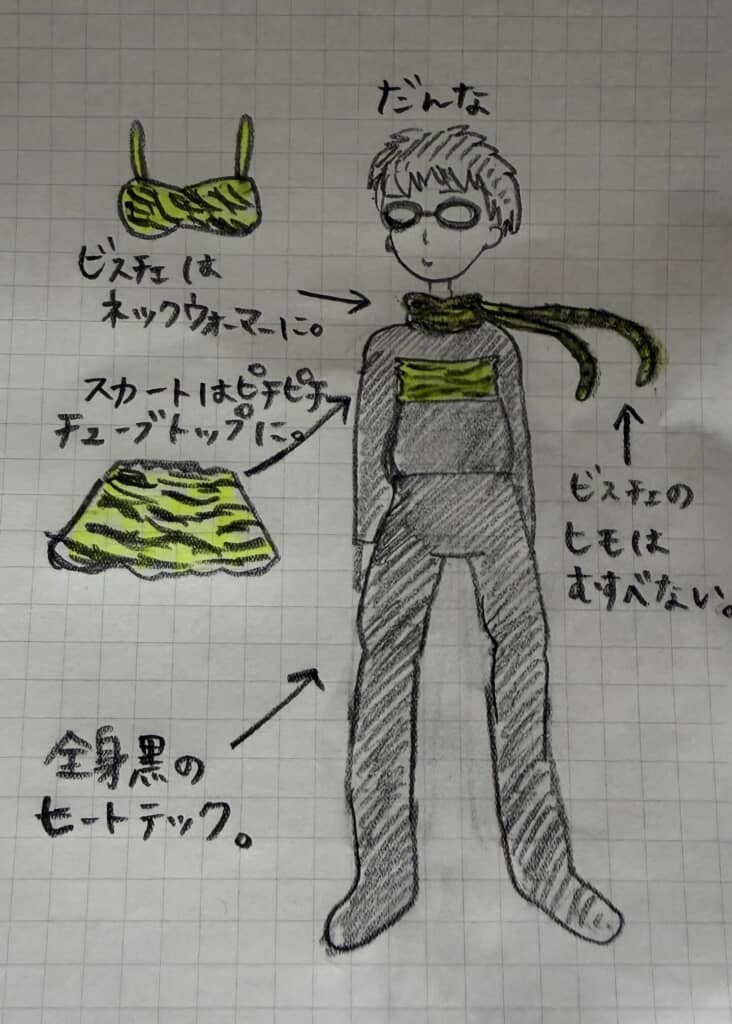 だんな
ビスチェは
ネックウォーマーに。
スカートはピチピチ
チューブトップに。
ビスチェの
ヒモは
むすべない。
全身黒の
ヒートテック。